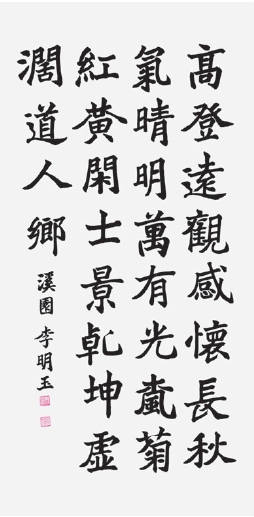 高登遠觀感懷長秋
氣晴明萬有光嵐菊
紅黃閑士景乾坤虛
濶道人鄉
溪園 李明玉